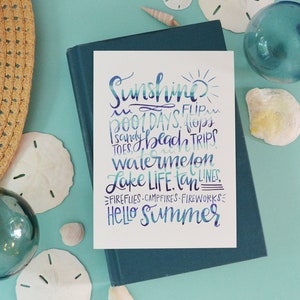 Sunshine
pool DAYS, FLIP flops
sandy TOES, beach TRIPS,
watermelon
Lake LIFE, tan LINES,
FIREFLIES - CAMPFIRES - FIREWORKS
Hello Summer